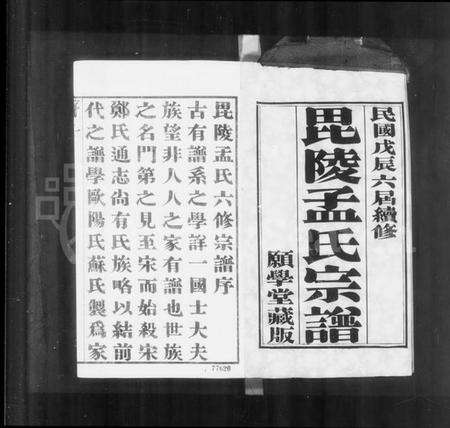 民國戊辰六屆續修
毘陵孟氏宗譜
願學堂藏版
毘陵孟氏六修宗譜序
古有譜系之學詳一國士大夫
族望非人人之家有譜也世族
之名門第之見至宋而始殺宋
鄭氏通志尚有氏族略以結前
代之譜學歐陽氏蘇氏製爲家
77620